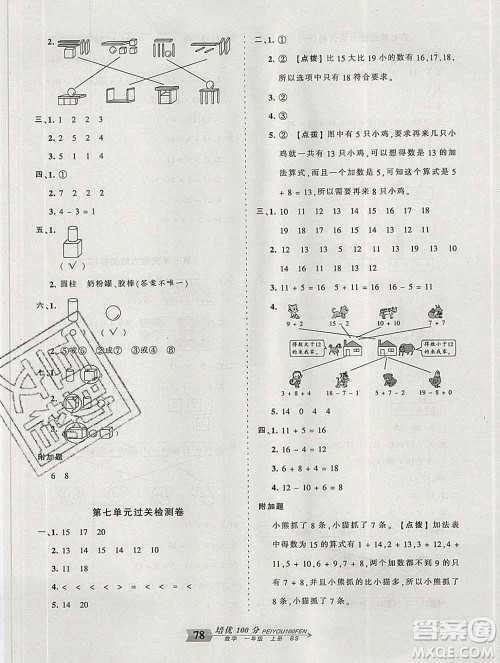 2.
三、1. 1 2 2 3
2. 5 2 2 4
四、1. ①
2. ②
3. 4－3－1－2
五、1.
（√）
2. 圆柱 奶粉罐、胶棒（答案不唯一）
六、1.
2. ⑤或⑥ ④或③ ⑧
附加题
6 8
第七单元过关检测卷
一、1. 15 17 20
2. 13 14 15 17 20
4. ＜ ＜ ＜ ＜ ＜ ＜
二、1. ①
2. ② 【点拨】比 15 大比 19 小的数有 16,17,18,
所以选项中只有 18 符合要求。
3. ②
4. ③
5. ② 【点拨】图中有 5 只小鸡,要求再来几只小
鸡就是 13 只小鸡,可以想得数是 13 的加
法算式,而且一个加数是 5,发现这个算式是
5＋8＝13,所以再来 8 只小鸡。
三、1. 10 11 14 17 19 19 18
2. 12 13 13 15 19 13
3. 11＋5＝16 16－5＝11
4.
9＋2 15－2 10＋10 7＋0
得数大于12的来我家。
得数小于12的来我家。
3＋8＋4 13－3 16－6 1＋2＋9
5. 14 0 0 20
四、1. 11＋5＝16
2. 6＋6＋6＝18
3. 6＋8＝14
4. 15－4＝11
附加题
小熊抓了 8 条,小猫抓了 7 条。【点拨】加法表
中得数为 15 的算式有 1＋14,2＋13,3＋12,
4＋11,5＋10,6＋9,7＋8,两个加数不超过 9 的
只有 6＋9 和 7＋8,并且小熊抓的比小猫抓的
多 1 条,所以小熊抓了 8 条,小猫抓了 7 条。
78
培优 100 分
PEIYOU100FEN
数学 一年级 上册 BS